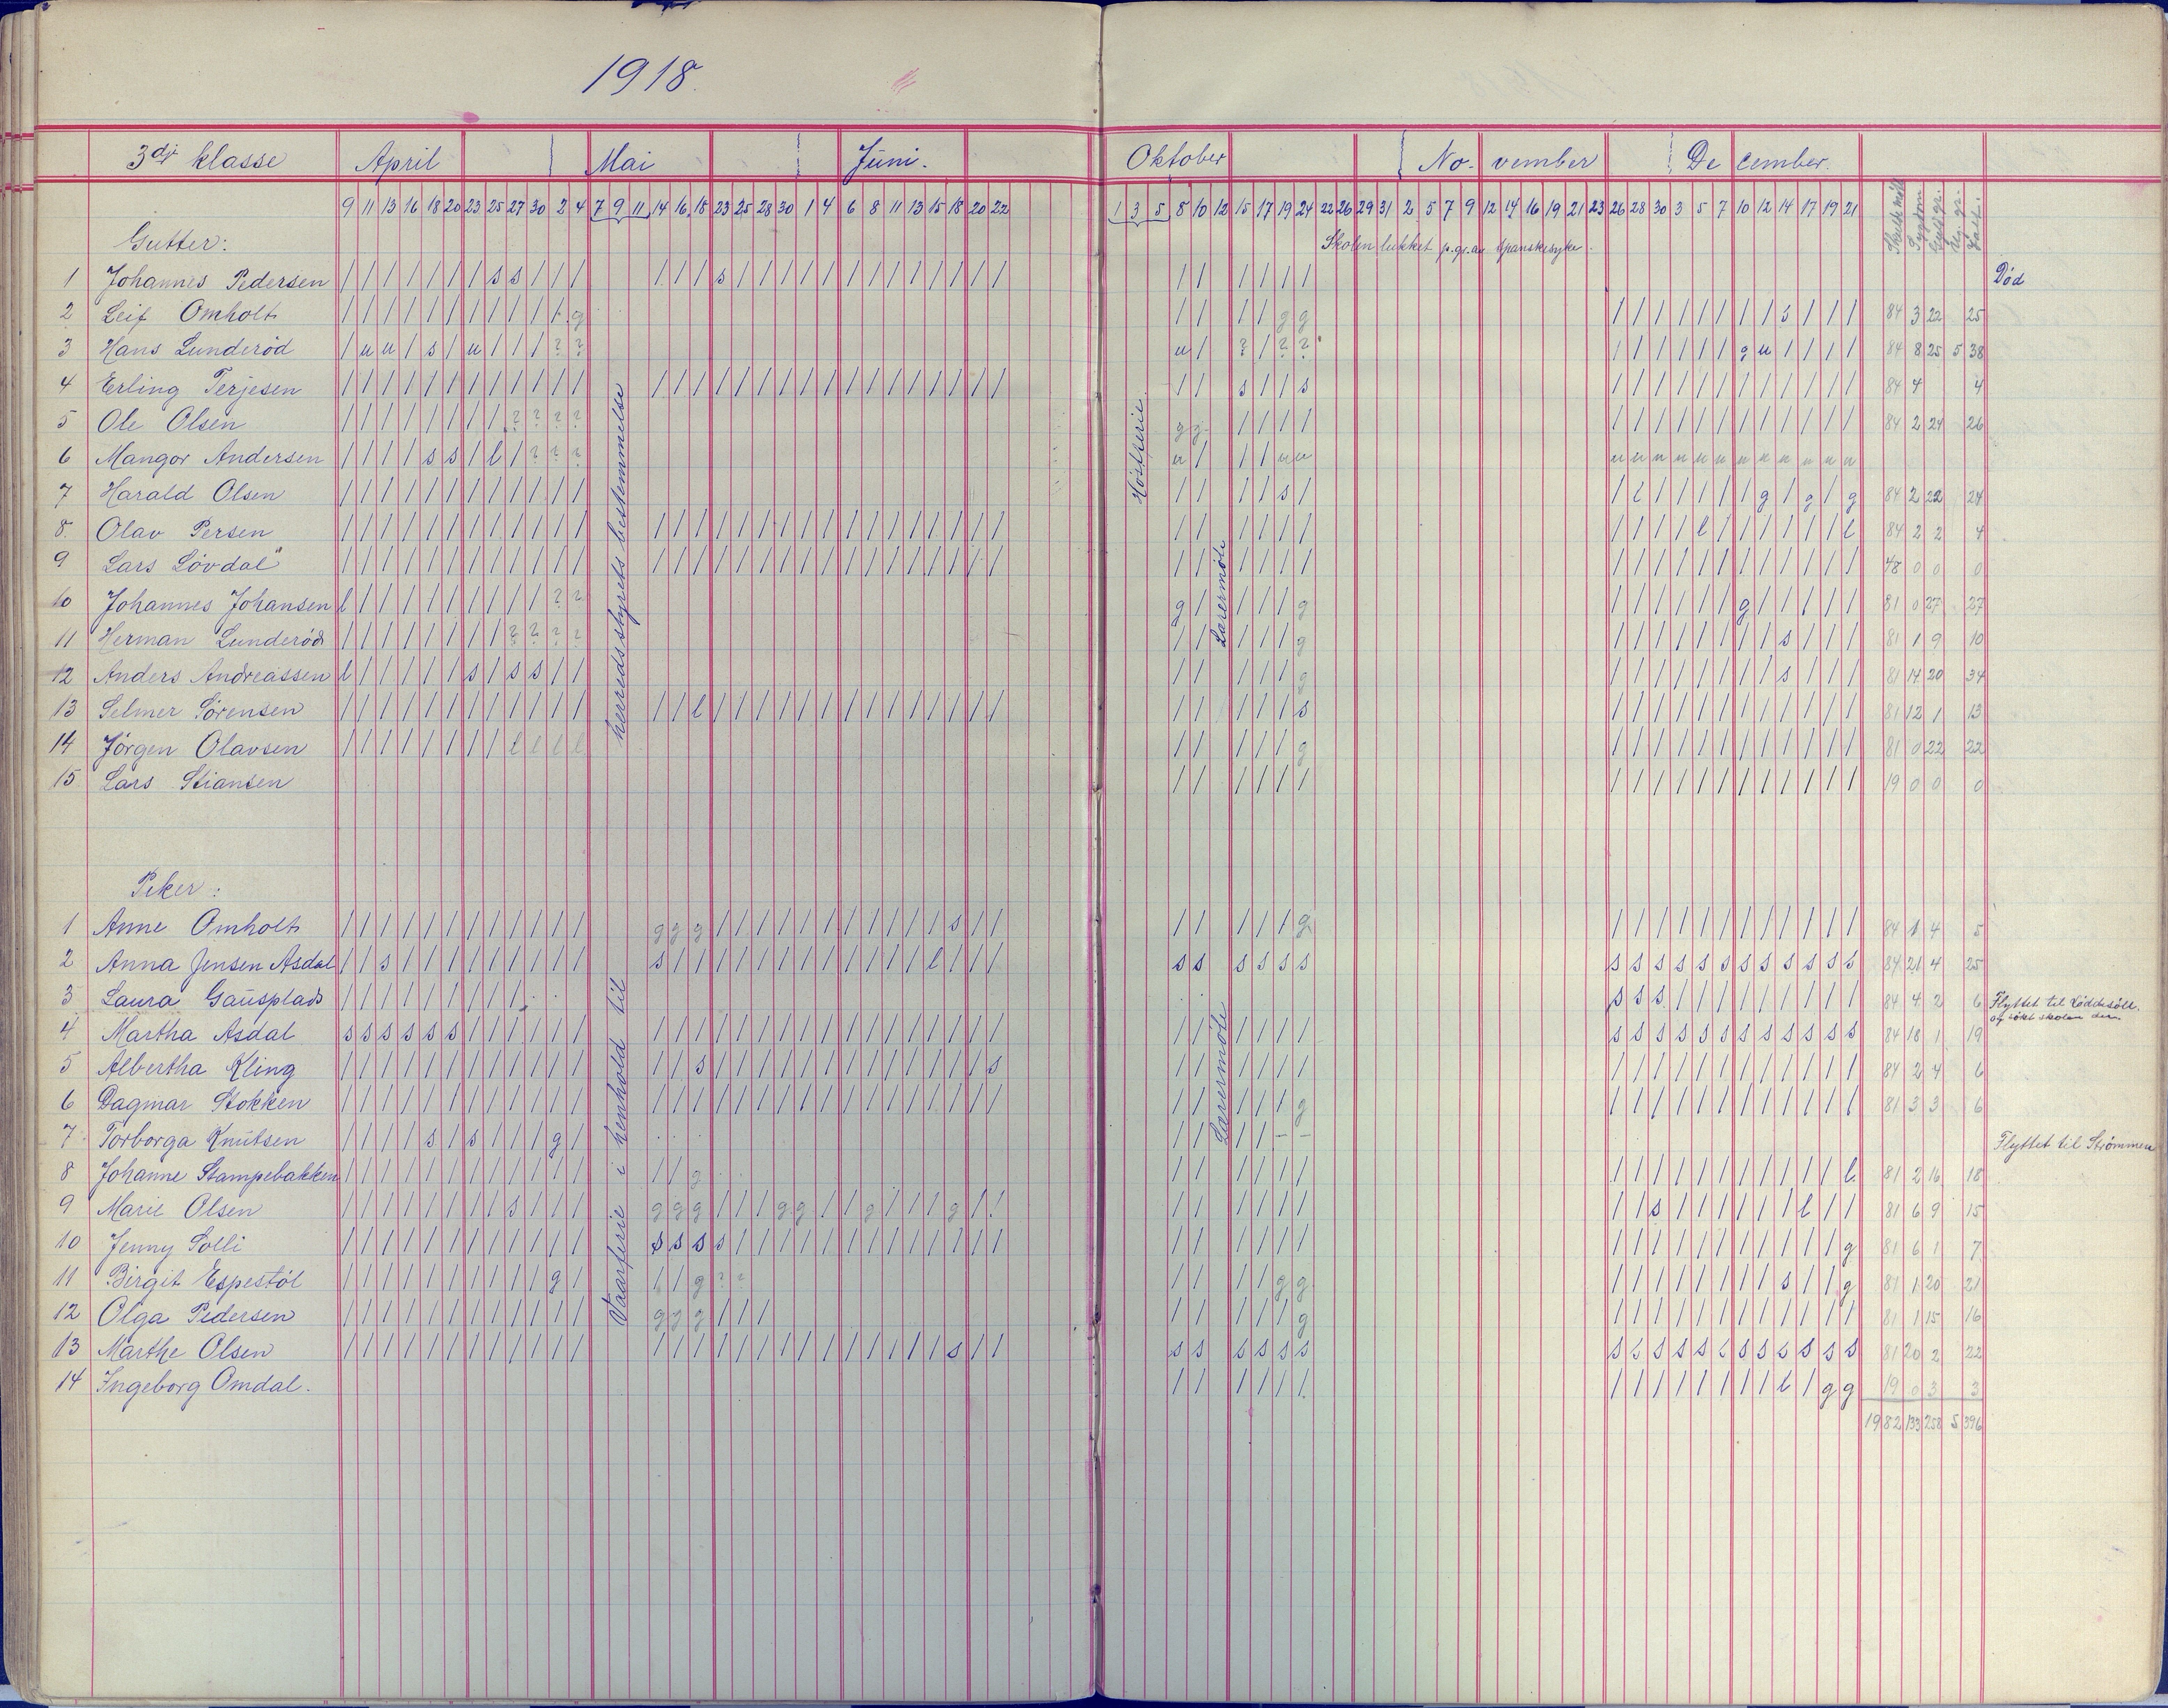 1918.
3dje klasse April Mai Juni. Oktober No- vember De cember.
9 11 13 16 18 20 23 25 27 30 2 4 7 9 11 14 16 18 23 25 28 30 1 4 6 8 11 13 15 18 20 22 1 3 5 8 10 12 15 17 19 24 22 26 29 31 2 5 7 9 12 14 16 19 21 23 26 28 30 3 5 7 10 12 14 17 19 21
Gutter: Skolen lukket p. gr. av spanskesyke.
1 Johannes Pedersen / / / / / / / s s / / / / / / s / / / / / / / / / / / / / / / / / / / Død
2 Leif Omholt / / / / / / / / / / / g / / / / g g / / / / / / / / s / / / 84 3 22 25
3 Hans Lunderød / u u / s / u / / / ? ? u / ? / ? ? / / / / / / g u / / / / 84 8 25 5 38
4 Erling Terjesen / / / / / / / / / / / / / / / / / / / / / / / / / / / / / / / s / / s / / / / / / / / / / / / 84 4 4
5 Ole Olsen / / / / / / / / ? ? ? ? g g / / / / / / / / / / / / / / / / 84 2 24 26
6 Mangor Andersen / / / / s s / l / ? ? ? u / / / u u u u u u u u u u u u u u
7 Harald Olsen / / / / / / / / / / / / / / / / s / / l / / / / / g / g / g 84 2 22 24
8. Olav Persen / / / / / / / / / / / / / / / / / / / / / / / / / / / / / / / / / / / / / / / l / / / / / / l 84 2 2 4
9 Lars Løvdal / / / / / / / / / / / / / / / / / / / / / / / / / / / / / / / / / / / / / / / / / / / / / / / 48 0 0 0
10 Johannes Johansen l / / / / / / / / / ? ? g / / / / g / / / / / / g / / / / / 81 0 27 27
11 Herman Lunderød / / / / / / / / ? ? ? ? / / / / / g / / / / / / / / s / / / 81 1 9 10
12 Anders Andreassen l / / / / / s / s s / / / / / / / g / / / / / / / / s / / / 81 14 20 34
13 Selmer Sørensen / / / / / / / / / / / / / / l / / / / / / / / / / / / / / / / / / / s / / / / / / / / / / / / 81 12 1 13
14 Jørgen Olavsen / / / / / / / / l l l l / / / / / g / / / / / / / / / / / / 81 0 22 22
15 Lars Stiansen / / / / / / / / / / / / / / / / / / 19 0 0 0
Vaarferie i henhold til herredsstyrets bestemmelse
Høstferie.
Lærermøte
Piker:
1 Anne Omholt / / / / / / / / / / / / g g g / / / / / / / / / / / s / / / / / / / g / / / / / / / / / / / / 84 1 4 5
2 Anna Jensen Asdal / / s / / / / / / / / / s / / / / / / / / / / / / l / / / s s s s s s s s s s s s s s s s s s 84 21 4 25
3 Laura Gausplads / / / / / / / / / s s s / / / / / / / / / 84 4 2 6 Flyttet til
og søkt skolen der.
4 Martha Asdal s s s s s s / / / / / / / / / / / / / / / / / / / / / / / / / / / / / s s s s s s s s s s s s 84 18 1 19
5 Albertha Kling / / / / / / / / / / / / / / s / / / / / / / / / / / / / s / / / / / / / / / / / / / / / / / / 84 2 4 6
6 Dagmar Stokken / / / / / / / / / / / / / / / / / / / / / / / / / / / / / / / / / / g / / / / / / / / / / / / 81 3 3 6
7 Torborga Knutsen / / / / s / s / / / g / / / / / - - Flyttet til Strømmen
8 Johanne Stampebakken / / / / / / / / / / / / / / g / / / / / / / / / / / / / / / / / l 81 2 16 18
9 Marie Olsen / / / / / / / / s / / / g g g / / / g g / / g / / / g / / / / / / / / / / s / / / / / / l / / 81 6 9 15
10 Jenny Solli / / / / / / / / / / / / s s s s / / / / / / / / / / / / / / / / / / / / / / / / / / / / / / g 81 6 1 7
11 Birgit Espestøl / / / / / / / / / / g / / / g ? ? / / / / g g / / / / / / / / s / / g 81 1 20 21
12 Olga Pedersen / / / / / / / / / / / / g g g / / / / / / / / g / / / / / / / / / / / / 81 1 15 16
13 Marthe Olsen / / / / / / / / / / / / / / / / / / / / / / / / / / s / / s s s s s s s s s s s s s s s s s s s 81 20 2 22
14 Ingeborg Omdal. / / / / / / / / / / / / / / l / g g 19 0 3 3
Lærermøte
1982 133 258 5 396